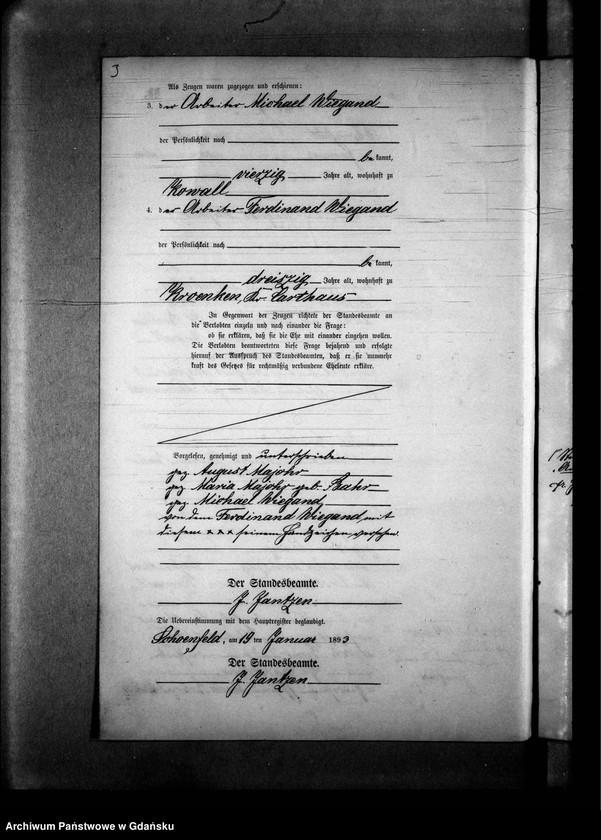 3
Als Zeugen waren zugezogen und erschienen:
3. der Arbeiter Michael Wiegand
der Persönlichkeit nach
be kannt,
vierzig Jahre alt, wohnhaft zu
Kowall
4. der Arbeiter Ferdinand Wiegand
der Persönlichkeit nach
be kannt,
dreiszig Jahre alt, wohnhaft zu
Kroenken, Kr. Carthaus
In Gegenwart der Zeugen richtete der Standesbeamte an
die Verlobten einzeln und nach einander die Frage:
ob sie erklären, daß sie die Ehe mit einander eingehen wollen.
Die Verlobten beantworteten diese Frage bejahend und erfolgte
hierauf der Ausspruch des Standesbeamten, daß er sie nunmehr
kraft des Gesetzes für rechtmäßig verbundene Eheleute erkläre.
Vorgelesen, genehmigt und unterschrieben
gez. August Majohr
gez. Maria Majohr geb.
gez. Michael Wiegand
von dem Ferdinand Wiegand, mit
diesem x x x seinem Handzeichen, versehen.
Der Standesbeamte.
J. Jantzen
Die Uebereinstimmung mit dem Hauptregister beglaubigt.
Schoenfeld, am 19 ten Januar 1893
Der Standesbeamte.
J. Jantzen
Archiwum Państwowe w Gdańsku